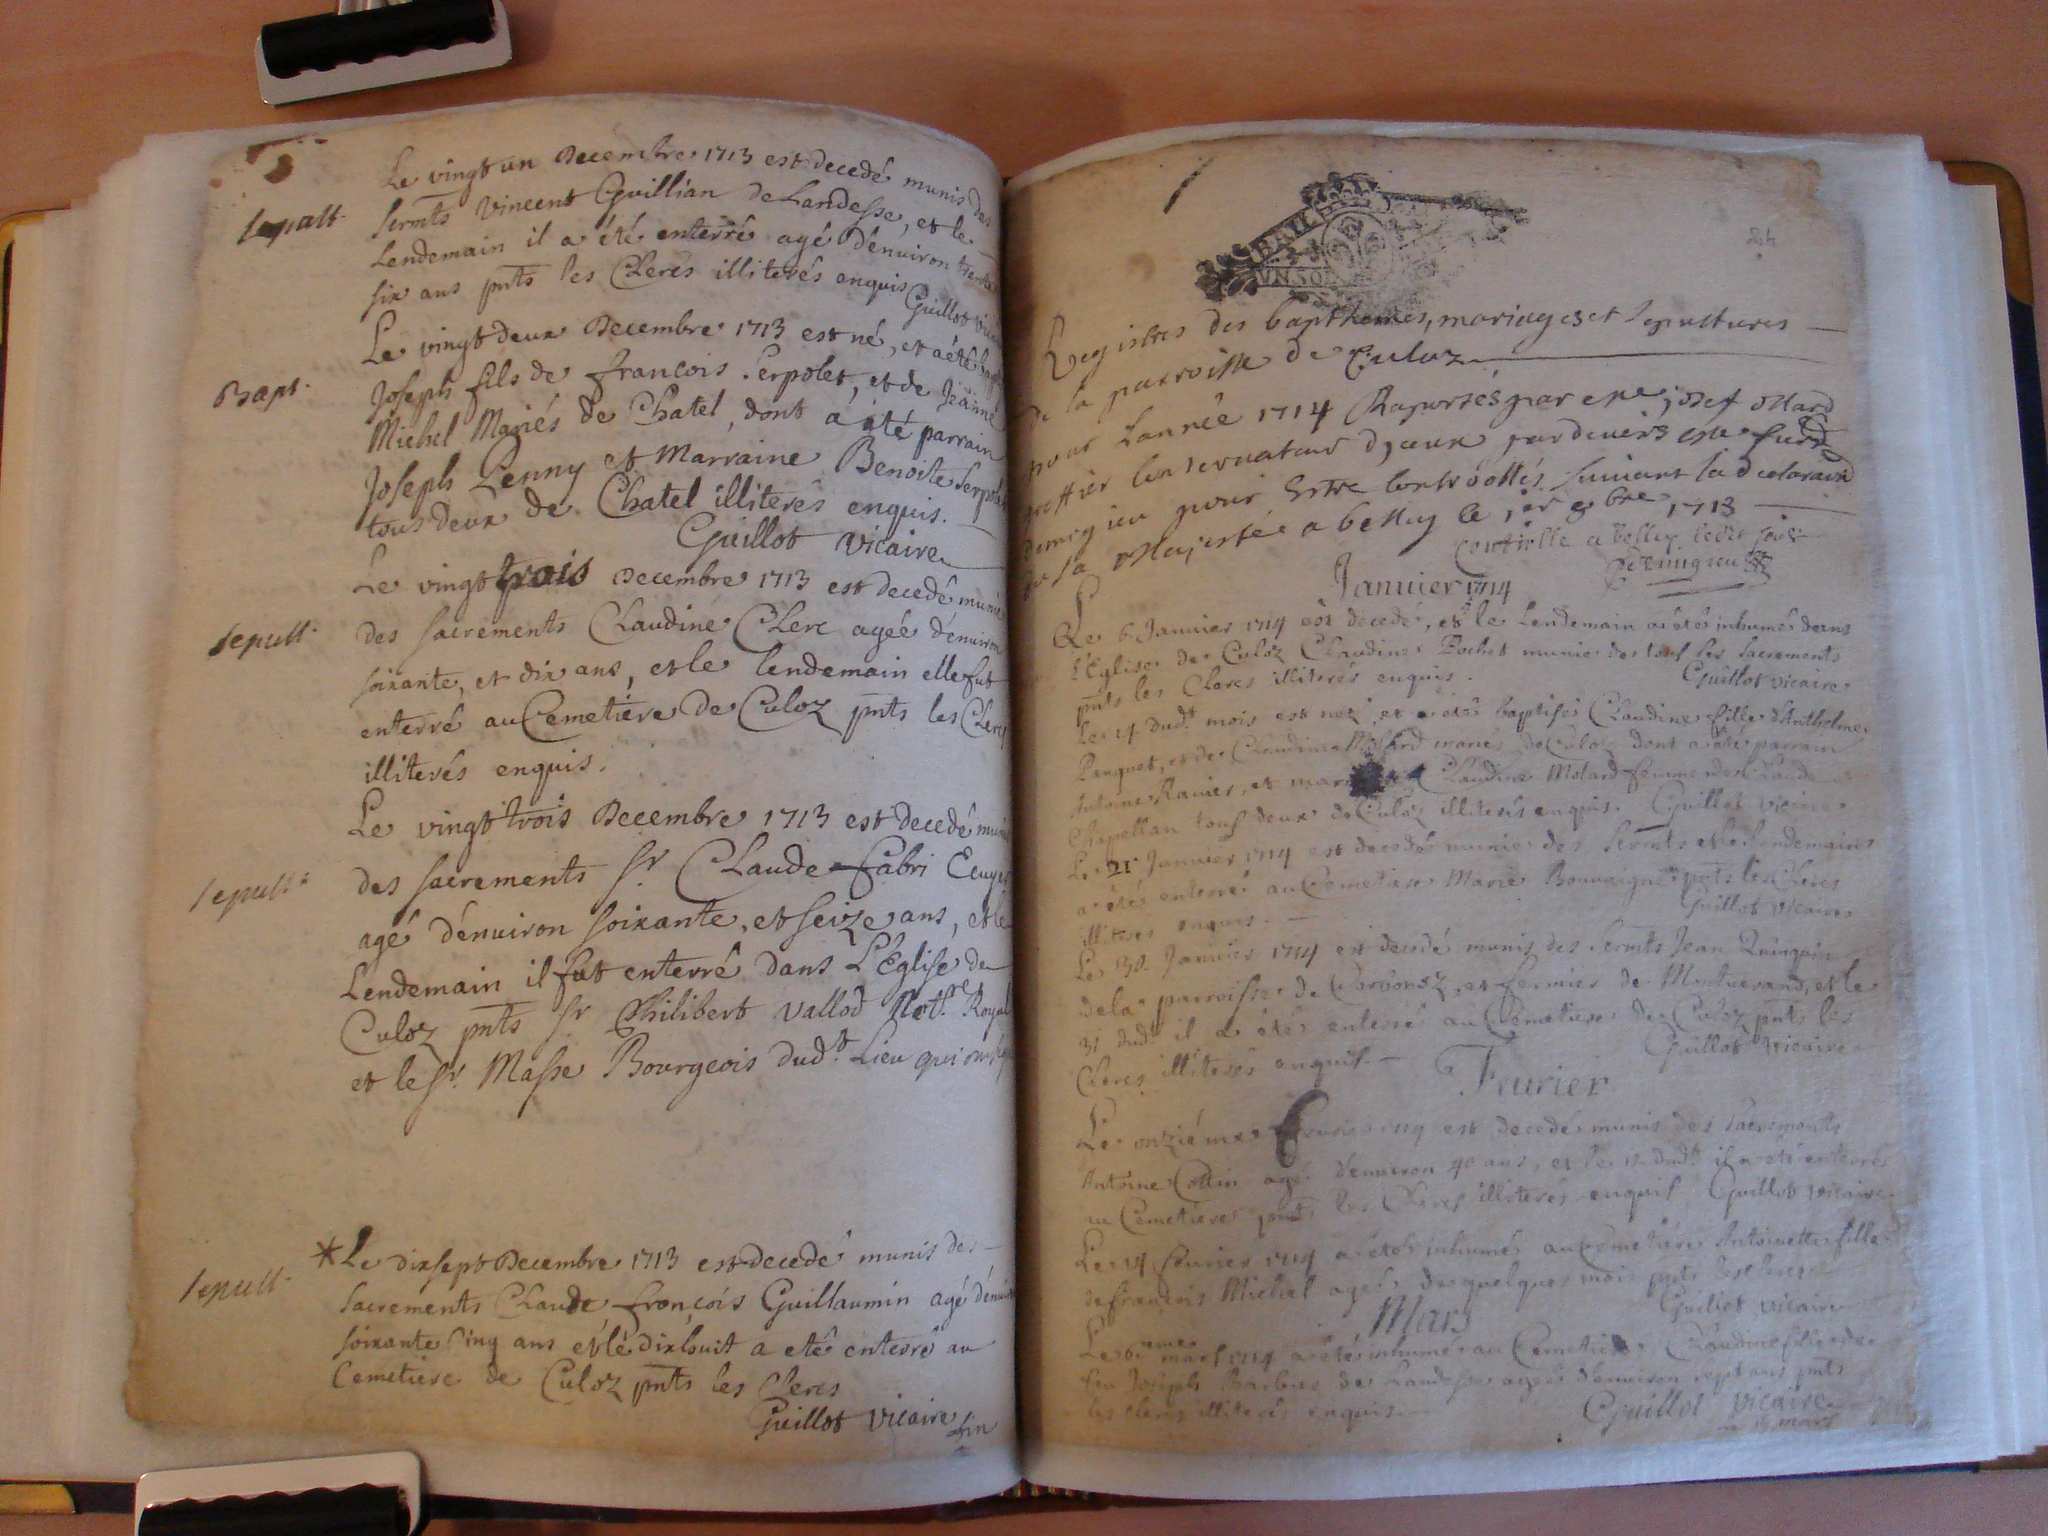 Le vingt un Decembre 1713 est decedé munis des
sepult. sermts Vincent Guillian de Landesse, et le
Lendemain il a été enterré agé d'énuiron trente
six ans pnts les Clercs illiterés enquis Guillot vicaire
Le vingt deux Decembre 1713 est né, et a été bapt
Bapt. Joseph fils de françois Serpolet, et de Jeanne
Michel Mariés de Chatel, dont a été parrain
Joseph Penny et Marraine Benoite Serpolet
tous deux de Chatel illiterés enquis.
Guillot vicaire
Le vingt trois Decembre 1713 est decedé munie
sepult. des sacrements Claudine Clerc agée d'énuiron
soixante, et dix ans, et le lendemain elle fut
enterré au Cemetiere de Culoz pnts les Clercs
illiterés enquis.
Le vingt trois Decembre 1713 est decedé munis
sepult. des sacrements Sr. Claude Fabri Ecuyer
agé d'énuiron soixante, et seize ans, et le
Lendemain il fut enterré dans L'Église de
Culoz pnts Sr Philibert Vallod Notre Royal
et le Sr. Masse Bourgeois dudt. Lieu qui ont
*Le dixsept Decembre 1713 est decedé munis des
sepult. sacrements Claude françois Guillaumin agé d'énuiron
soixante Cinq ans et le dixhuit a eté enterré au
Cemetiere de Culoz pnts les Clercs
Guillot vicaire
fin
UN SO
Registres des bapthemes, mariages et sepultures
de la parroisse de Culoz
pour Lannée 1714 par Me josef
greffier Conservateur d'jceux par devers
pour Estre Controollés suivant la declaraõn
de sa Majestée a belley le 1er 8bre 1713
Controlle a belley ledit jour
Januier 1714
Le 6 Januier 1714 est decedé, et le Lendemain a été inhumé dans
l'Eglise de Culoz Claudine Pochet munie de tous les sacrements
pnts les Clercs illiterés enquis. Guillot vicaire
Le 14 dudt. mois est nez et a été baptisé Claudine fille d'Anthelme
Panquet, et de Claudine Molard mariés de Culoz dont a été parrain
Antoine Rauier, et mar Claudine Molard femme de Claude
Chapellan tous deux de Culoz illiterés enquis. Guillot vicaire
Le 21 Januier 1714 est decedé munie des sermts et le Lendemain
a été enterré au Cemetiere Marie pnts les Clercs
illiterés enquis. Guillot vicaire
Le 30 Januier 1714 est decedé munis des sermts Jean
de la parroisse de et fermier de Montuerand, et le
31 dudt. il a été enterré au Cemetiere de Culoz pnts les
Clercs illiterés enquis. Guillot vicaire
Feurier
Le onziéme feurier 1714 est decedé munis des sacrements
Antoine Collin agé d'énuiron 40 ans, et le 12 dudt. il a été enterré
au Cemetiere pnts les Clercs illiterés enquis Guillot vicaire
Le 14 feurier 1714 a été inhumé au Cemetiere Antoinette fille
de françois Michel agée de quelques mois pnts les clercs
Guillot vicaire
Mars
Le 6eme mars 1714 a été inhumé au Cemetiere Claudine fille de
feu Joseph Barbier de Landesse agée d'énuiron sept ans pnts
les clercs illiterés enquis Guillot vicaire
mars